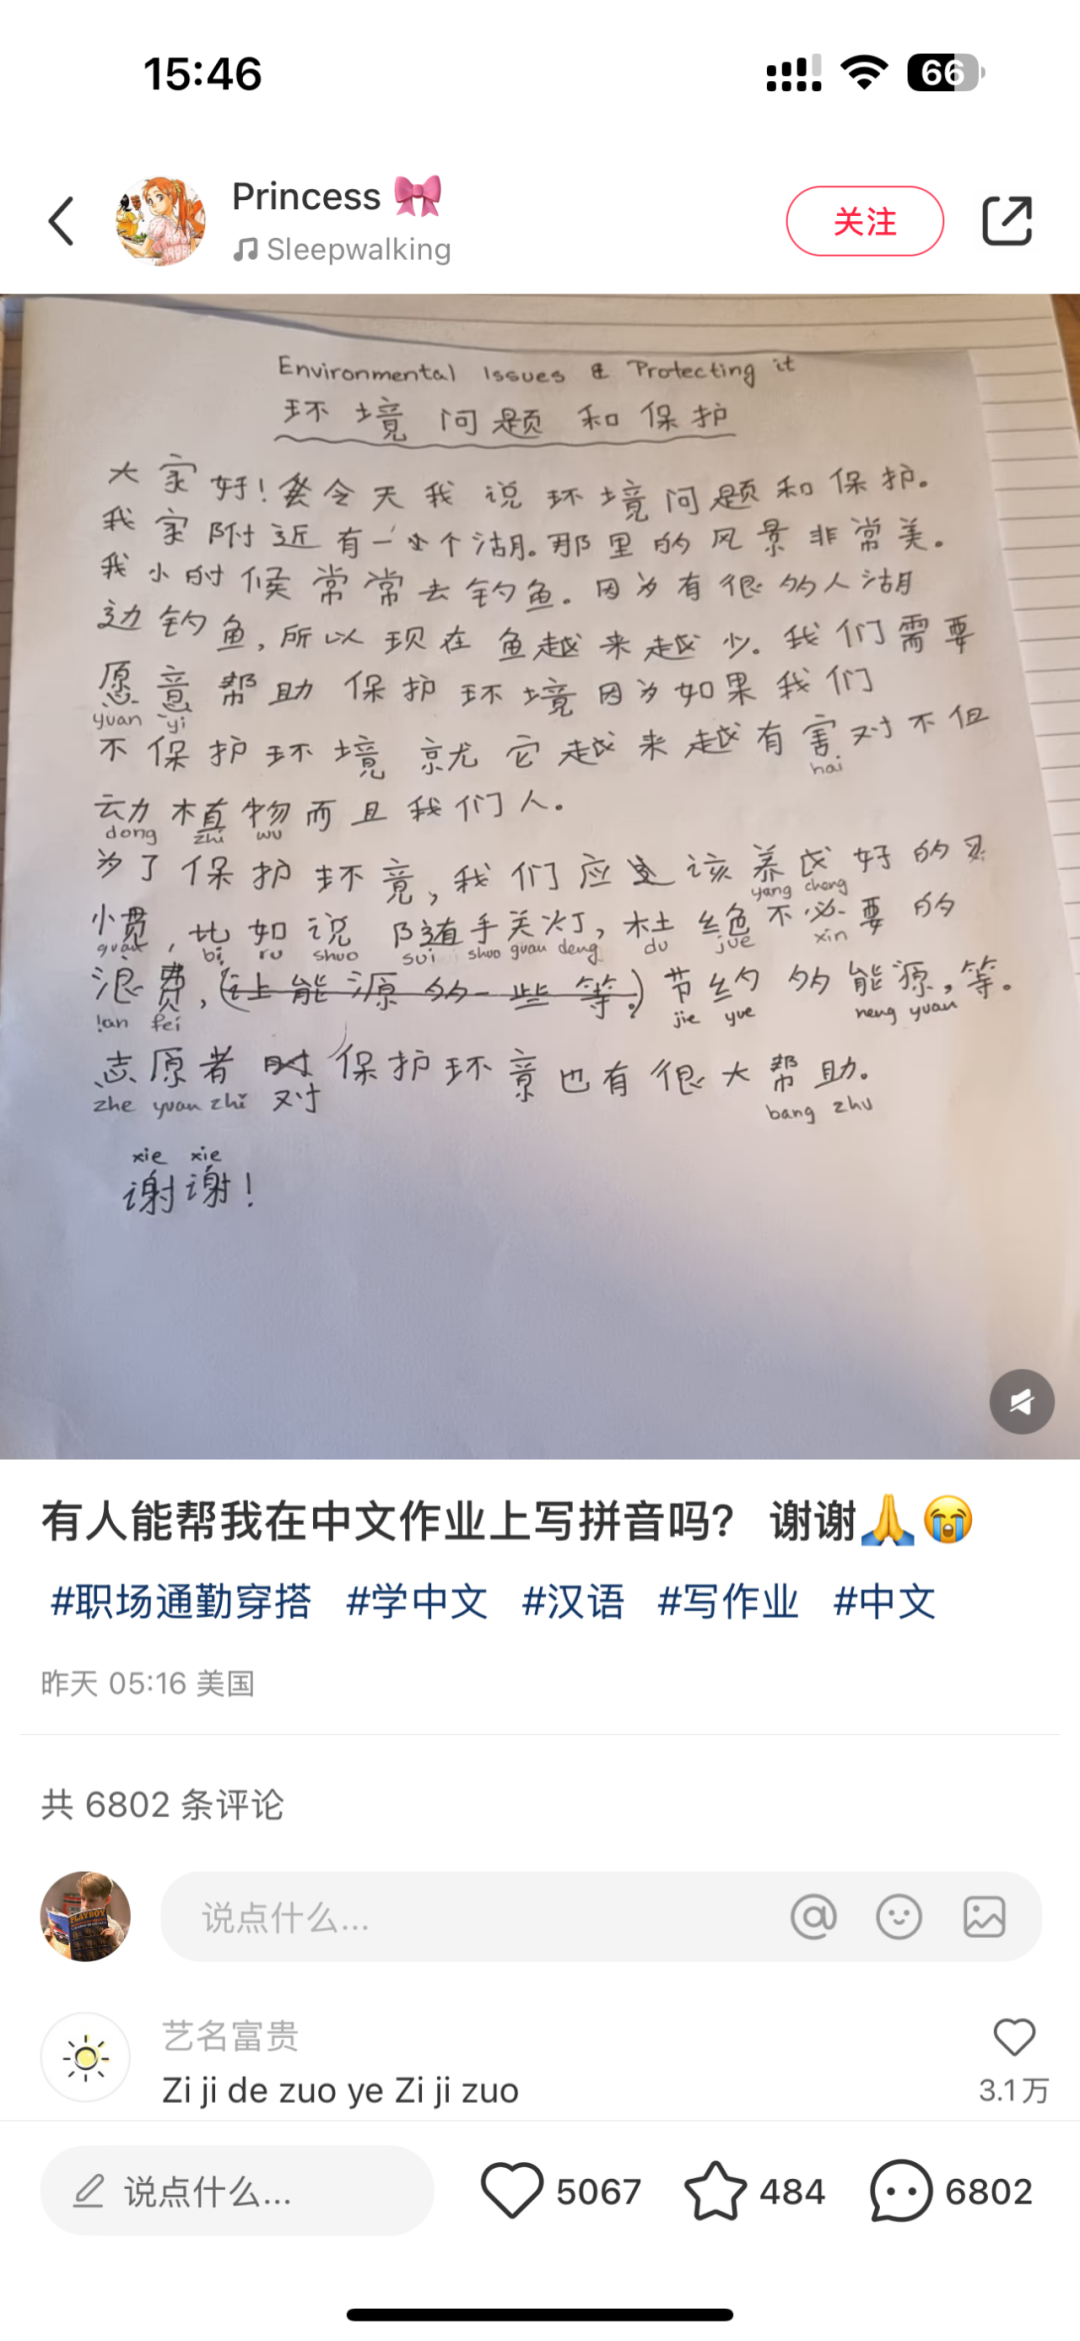 15:46
66
Princess
Sleepwalking
关注
Environmental Issues & Protecting it
环境问题和保护
大家好！今天我说环境问题和保护。
我家附近有一个湖。那里的风景非常美。
我小时候常常去钓鱼。因为有很多人湖
边钓鱼，所以现在鱼越来越少。我们需要
愿意帮助保护环境因为如果我们
yuan yi
不保护环境就它越来越有害对不但
hai
动植物而且我们人。
dong zhi wu
为了保护环竟，我们应该养成好的习
yang cheng
惯，比如说随手关灯，杜绝不必要的
guan bi ru shuo sui shuo guan deng du jue xin
浪费，（让能源的一些等。）节约的能源，等。
lan fei jie yue neng yuan
志愿者 保护环竟也有很大帮助。
zhe yuan zhi 对 bang zhu
xie xie
谢谢！
有人能帮我在中文作业上写拼音吗？ 谢谢🙏😭
#职场通勤穿搭 #学中文 #汉语 #写作业 #中文
昨天 05:16 美国
共 6802 条评论
说点什么...
艺名富贵
Zi ji de zuo ye Zi ji zuo
3.1万
说点什么...
5067
484
6802